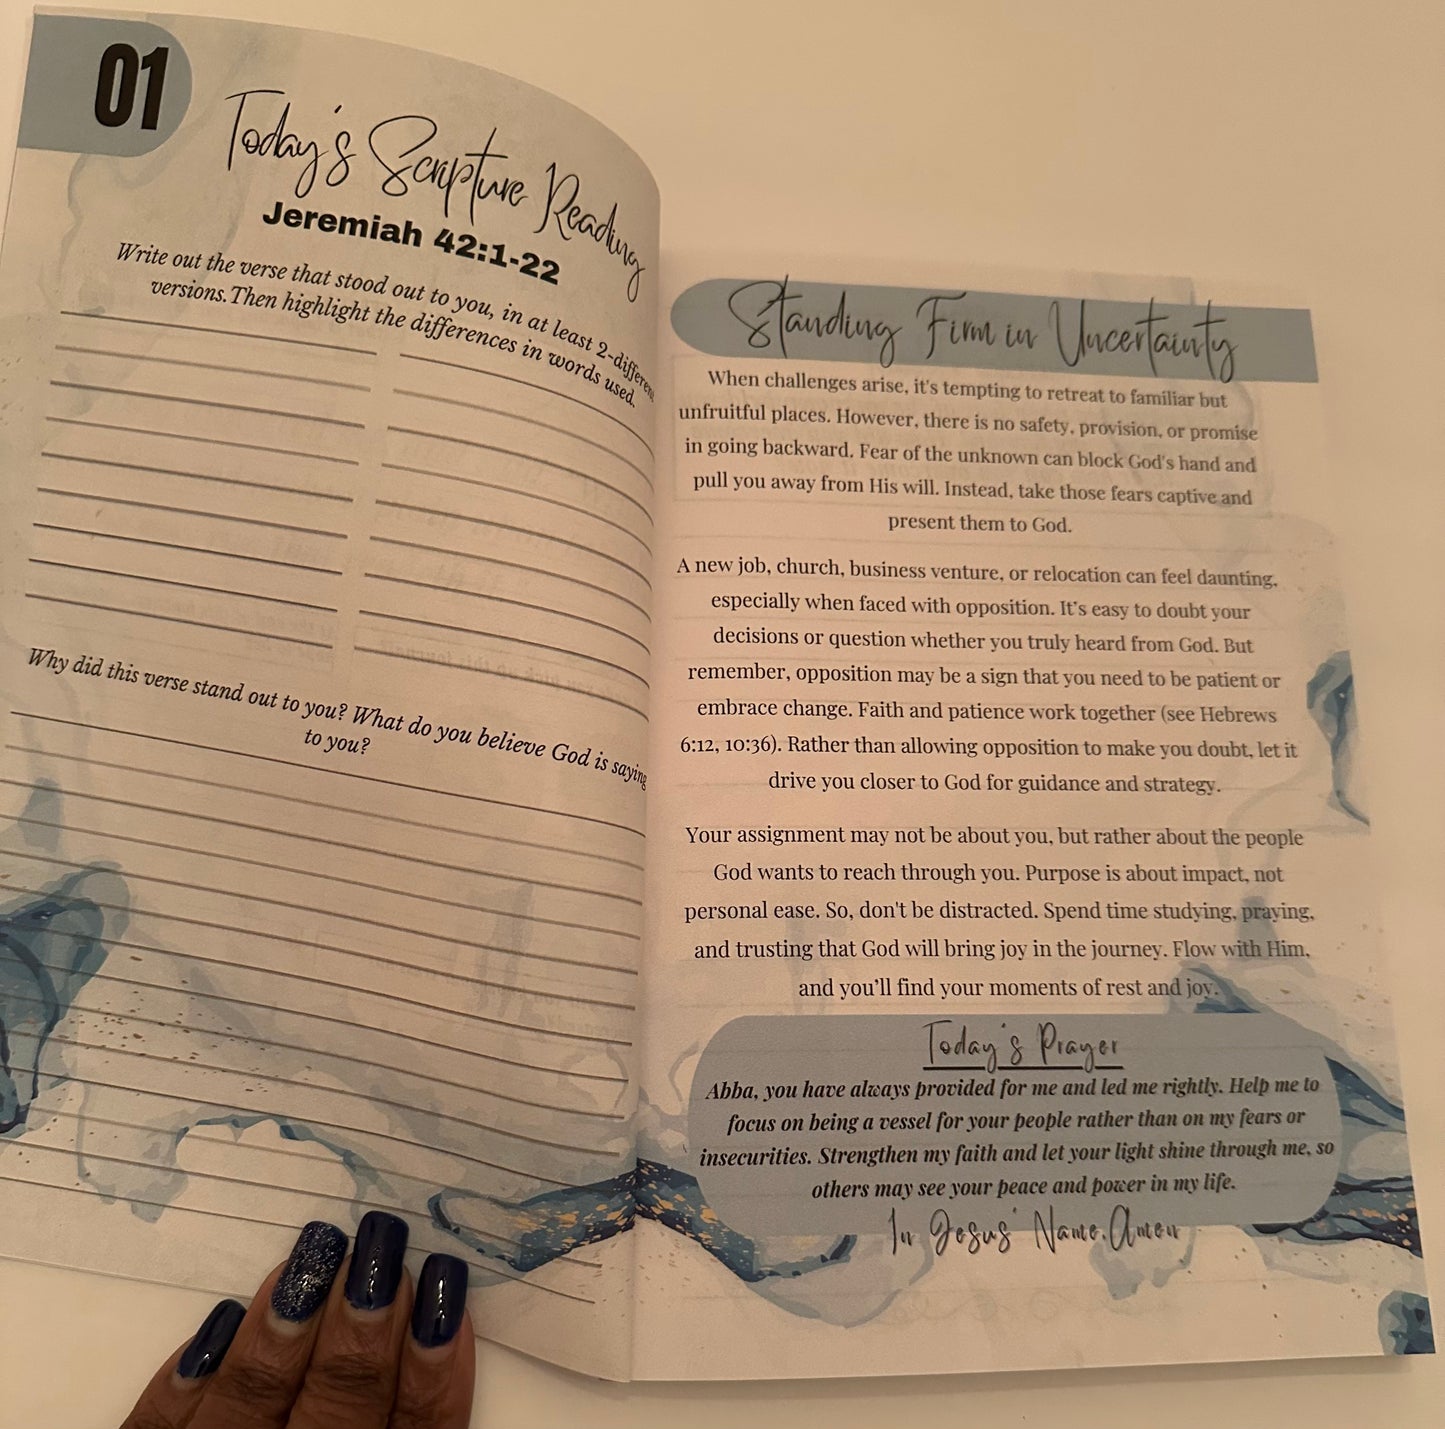 01
Today's Scripture Reading
Jeremiah 42:1-22
Write out the verse that stood out to you, in at least 2-different
versions. Then highlight the differences in words used.
Why did this verse stand out to you? What do you believe God is saying
to you?
Standing Firm in Uncertainty
When challenges arise, it's tempting to retreat to familiar but
unfruitful places. However, there is no safety, provision, or promise
in going backward. Fear of the unknown can block God's hand and
pull you away from His will. Instead, take those fears captive and
present them to God.
A new job, church, business venture, or relocation can feel daunting,
especially when faced with opposition. It's easy to doubt your
decisions or question whether you truly heard from God. But
remember, opposition may be a sign that you need to be patient or
embrace change. Faith and patience work together (see Hebrews
6:12, 10:36). Rather than allowing opposition to make you doubt, let it
drive you closer to God for guidance and strategy.
Your assignment may not be about you, but rather about the people
God wants to reach through you. Purpose is about impact, not
personal ease. So, don't be distracted. Spend time studying, praying,
and trusting that God will bring joy in the journey. Flow with Him,
and you'll find your moments of rest and joy.
Today's Prayer
Abba, you have always provided for me and led me rightly. Help me to
focus on being a vessel for your people rather than on my fears or
insecurities. Strengthen my faith and let your light shine through me, so
others may see your peace and power in my life.
In Jesus' Name, Amen